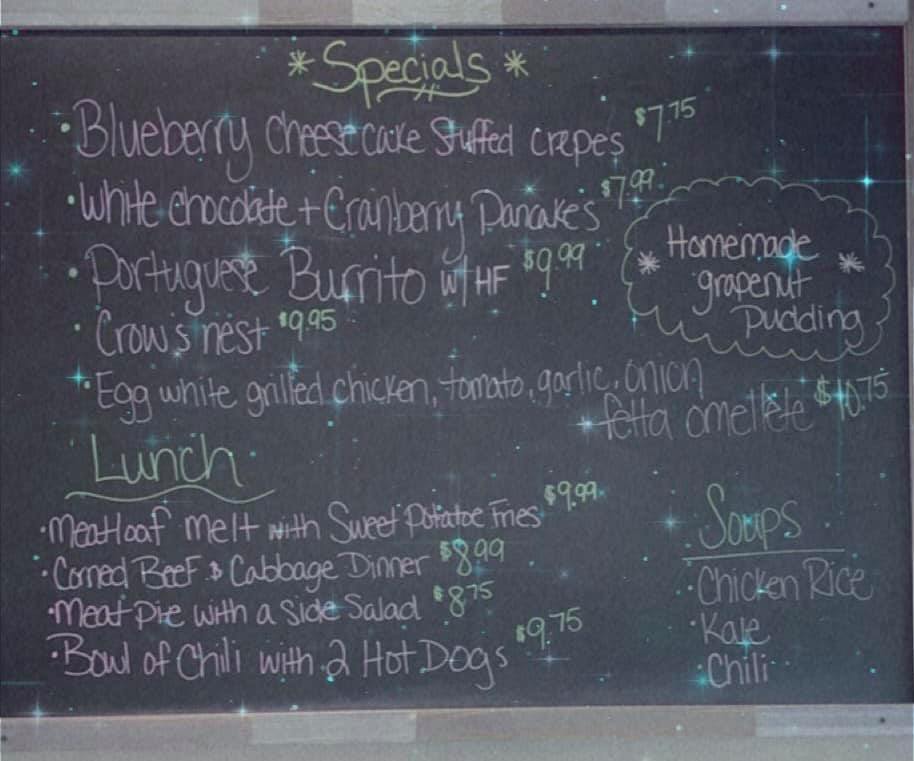 * Specials *
• Blueberry Cheesecake Stuffed crepes $7.75
• White chocolate + Cranberry Pancakes $7.99
• Portuguese Burrito w/ HF $9.99
• Crow's nest $9.95
• Egg white grilled chicken, tomato, garlic, onion
fetta omellete $10.75
* Homemade *
grapenut
Pudding
Lunch
• Meatloaf melt with Sweet Potatoe Fries $9.99
• Corned Beef & Cabbage Dinner $8.99
• Meat pie with a side Salad $8.75
• Bowl of Chili with 2 Hot Dogs $9.75
Soups
• Chicken Rice
• Kale
• Chili